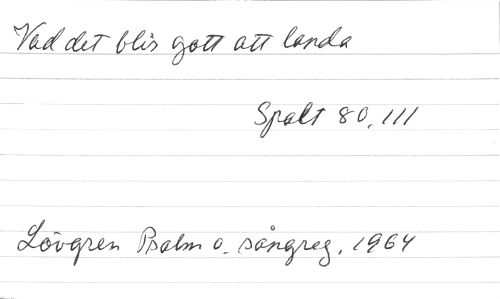 Vad det blir gott att landa
Spalt 80, 111
Lövgren Psalm o. sångreg, 1964